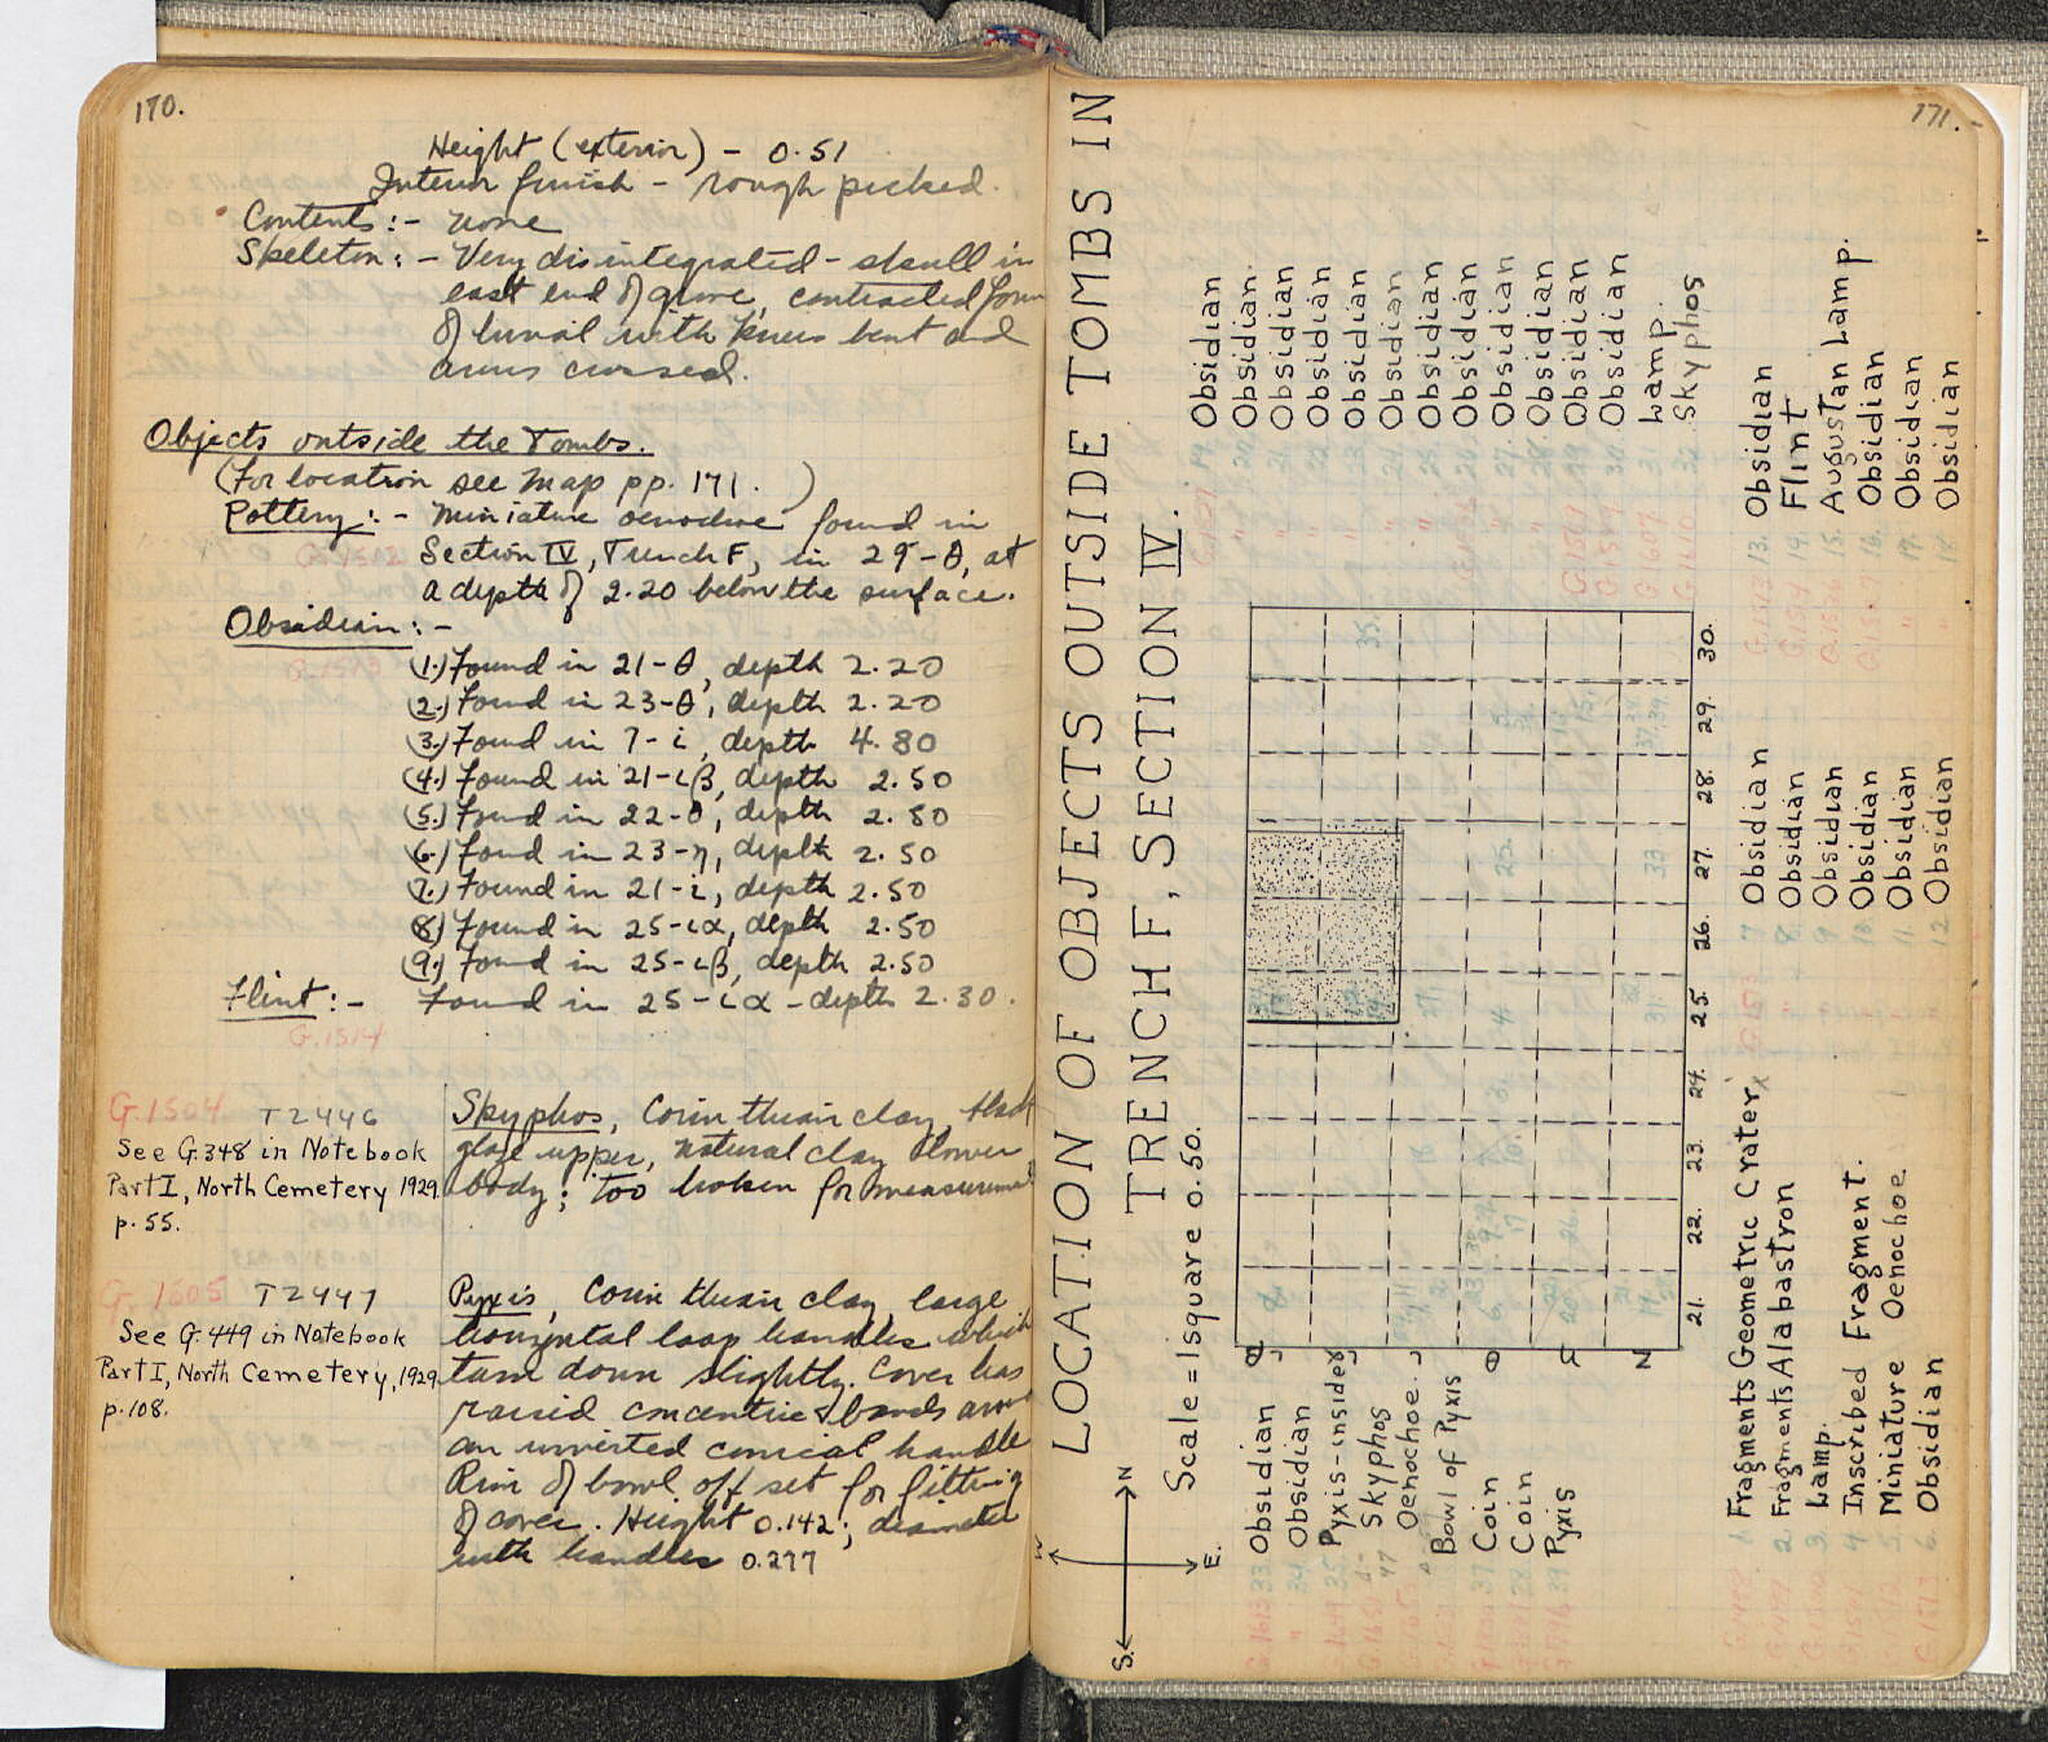 170.
Height (exterior) - 0.51
Interior finish - rough picked.
Contents:- none
Skeleton:- Very disintegrated - skull in
east end of grave, contracted form
of burial with knees bent and
arms crossed.
Objects outside the Tombs.
(For location see Map pp. 171. )
Pottery:- Miniature oenochoe found in
Section IV, Trench F, in 29-θ, at
a depth of 2.20 below the surface.
Obsidian:-
G.1513
(1.) Found in 21-θ, depth 2.20
(2.) Found in 23-θ, depth 2.20
(3.) Found in 7-ι, depth 4.80
(4.) Found in 21-ιβ, depth 2.50
(5.) Found in 22-θ, depth 2.50
(6.) Found in 23-η, depth 2.50
(7.) Found in 21-ι, depth 2.50
(8.) Found in 25-ια, depth 2.50
(9.) Found in 25-ιβ, depth 2.50
Flint:- Found in 25-ια - depth 2.30.
G.1514
G.1504 T2446
See G.348 in Notebook
Part I, North Cemetery 1929.
p.55.
Skyphos, Corinthian clay, black
glaze upper, natural clay lower
body; too broken for measurement
G.1505 T2447
See G.449 in Notebook
Part I, North Cemetery, 1929
p.108.
Pyxis, Corinthian clay, large
horizontal loop handles which
turn down slightly. Cover has
raised concentric bands and
an inverted conical handle
Rim of bowl off set for fitting
of cover. Height 0.142; diameter
with handles 0.277
171.
LOCATION OF OBJECTS OUTSIDE TOMBS IN
TRENCH F, SECTION IV.
Scale = 1 square 0.50.
S. N
W E.
21. 22. 23. 24. 25. 26. 27. 28. 29. 30.
1. Fragments Geometric Crater
2. Fragments Alabastron
3. Lamp.
4 Inscribed Fragment.
5. Miniature Oenochoe
6. Obsidian
7 Obsidian
8. Obsidian
9 Obsidian
10. Obsidian
11. Obsidian
12 Obsidian
13. Obsidian
14. Flint
15. Augustan Lamp.
16. Obsidian
17. Obsidian
18. Obsidian
19. Obsidian
20. Obsidian.
21. Obsidian
22. Obsidian
23. Obsidian
24. Obsidian
25. Obsidian
26. Obsidian
27. Obsidian
28. Obsidian
29 Obsidian
30. Obsidian
31 Lamp.
32 Skyphos
33 Obsidian
34 Obsidian
35 Pyxis-inside
Skyphos
Oenochoe.
Bowl of Pyxis
37 Coin
38. Coin
39 Pyxis